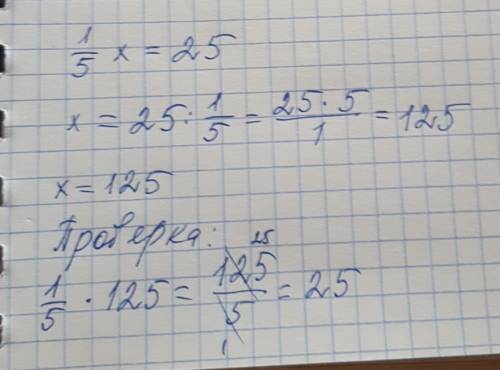 1/5 x = 25
x = 25 : 1/5 = 25 · 5/1 = 125
x = 125
Проверка:
1/5 · 125 = 125/5 = 25